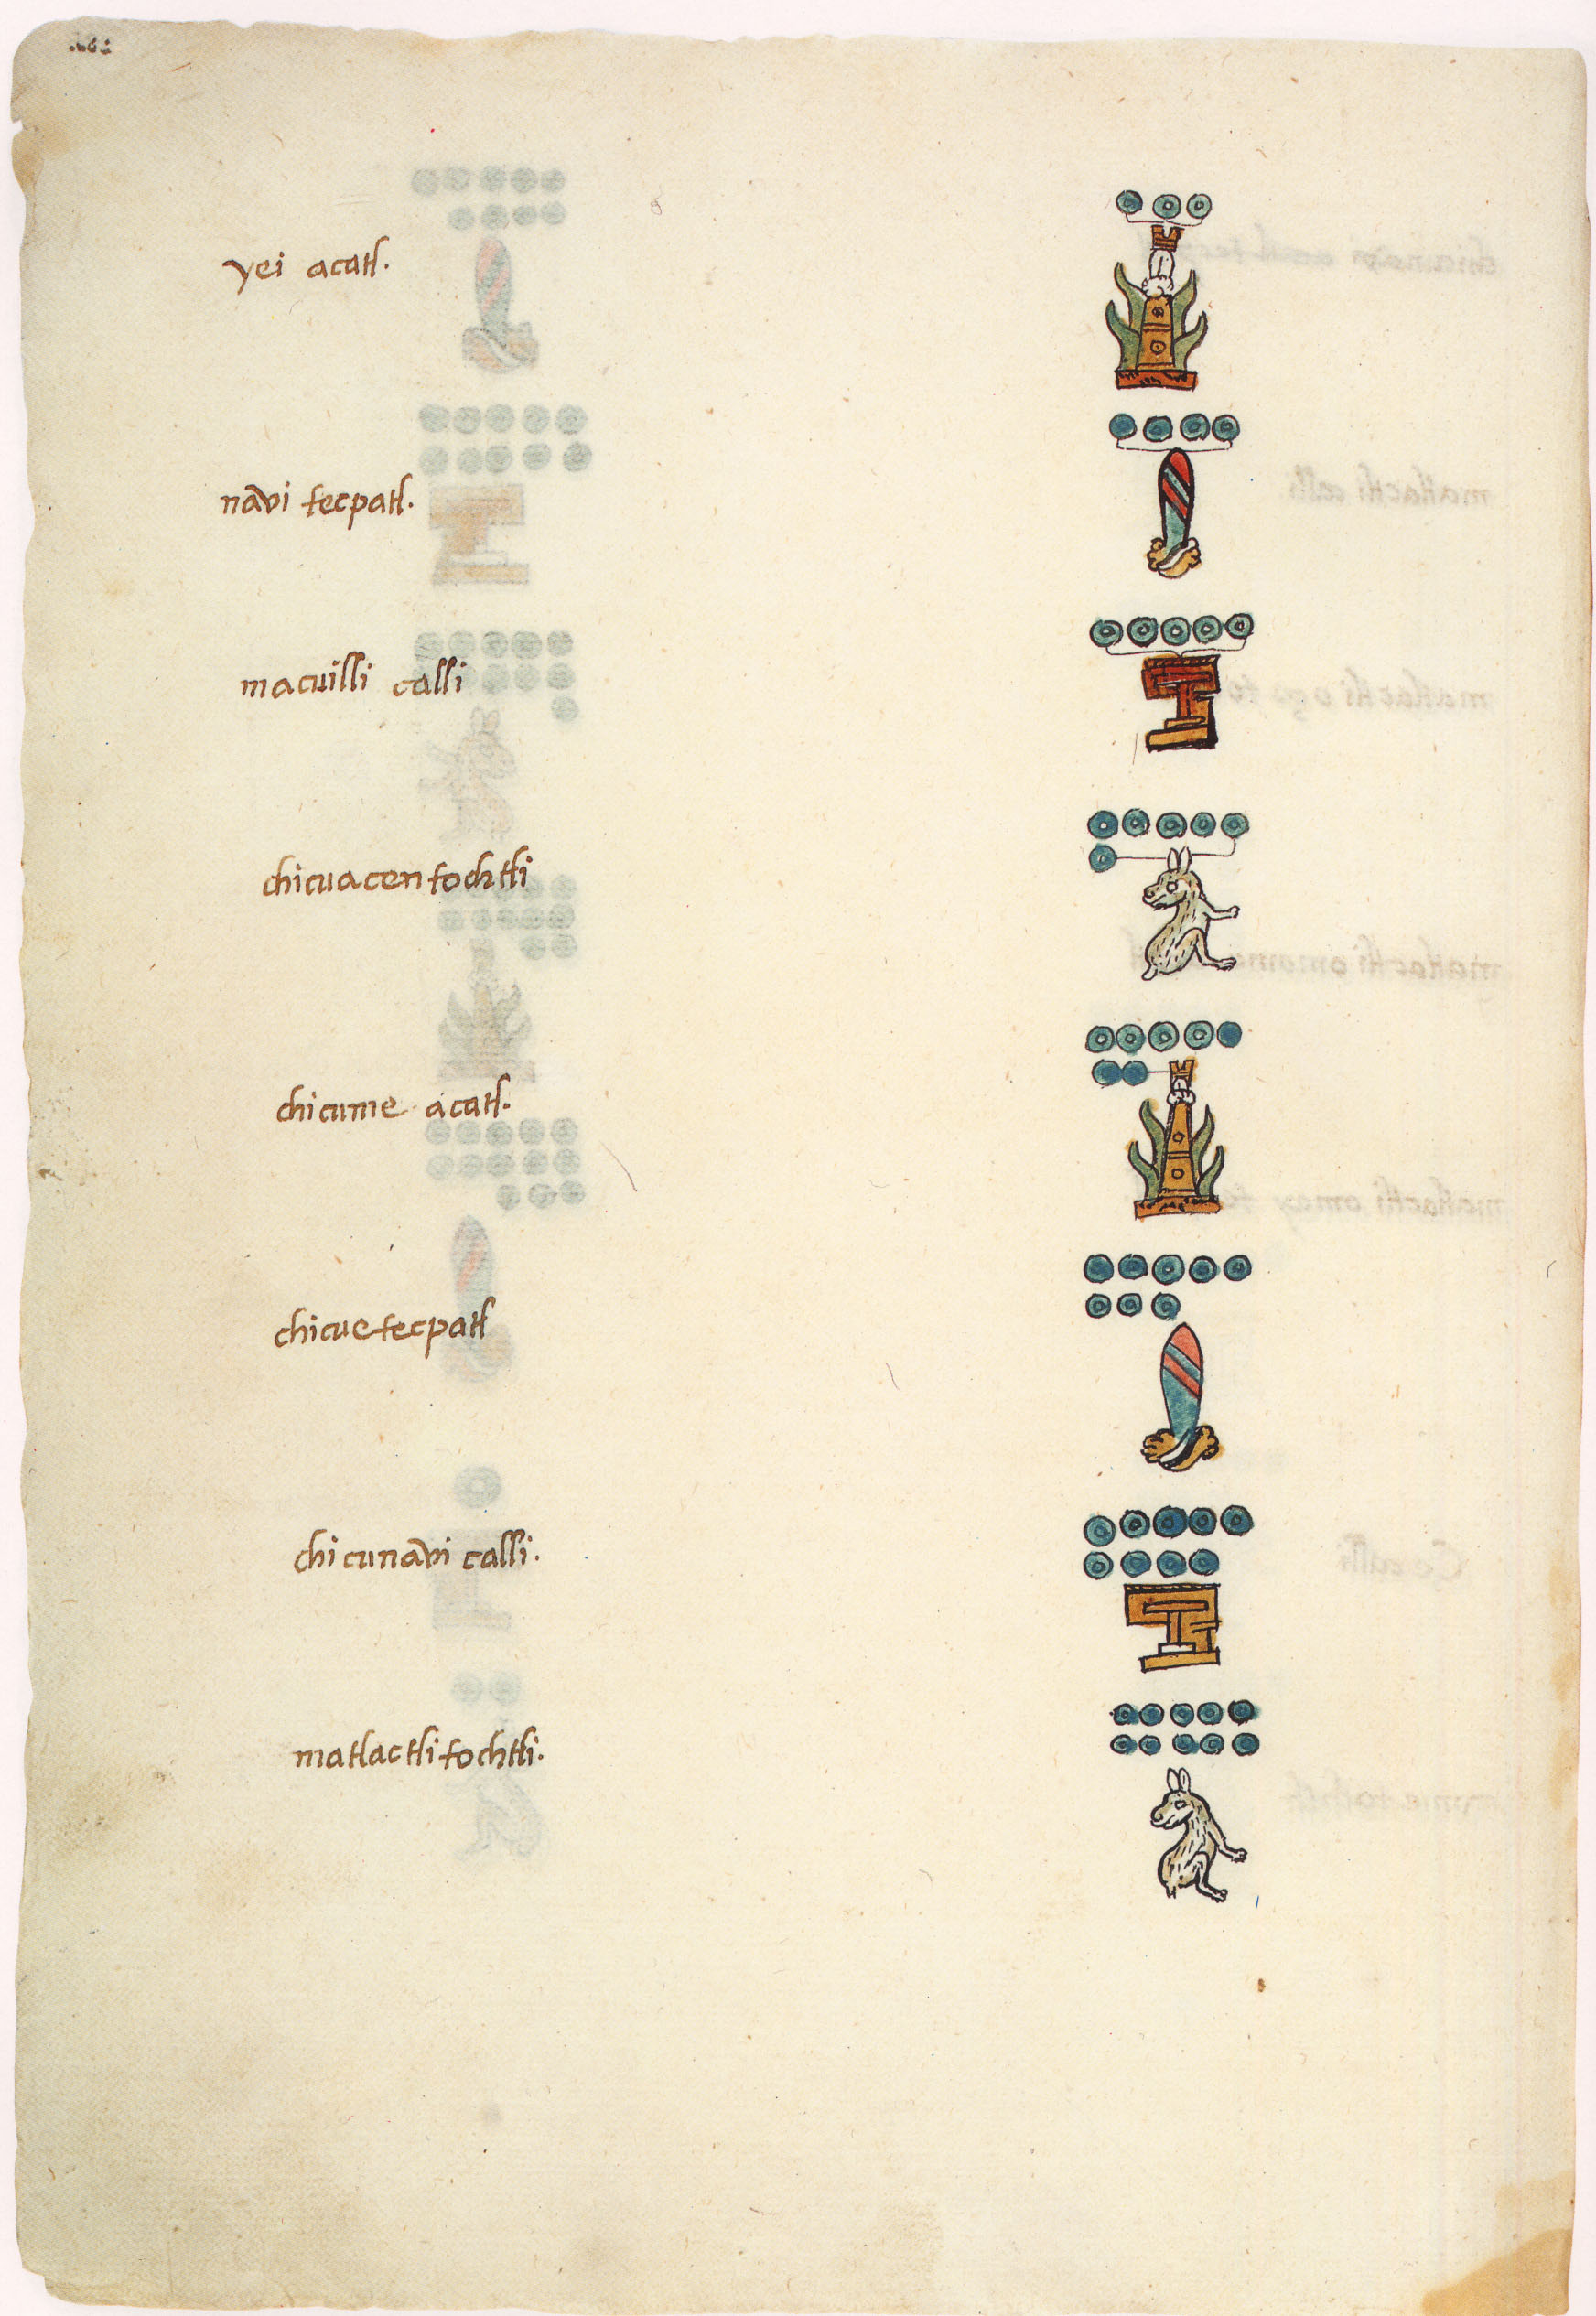 yei acatl.
navi tecpatl.
macuilli calli
chicuacen tochtli
chicume acatl.
chicue tecpatl
chicunavi calli.
matlactli tochtli.